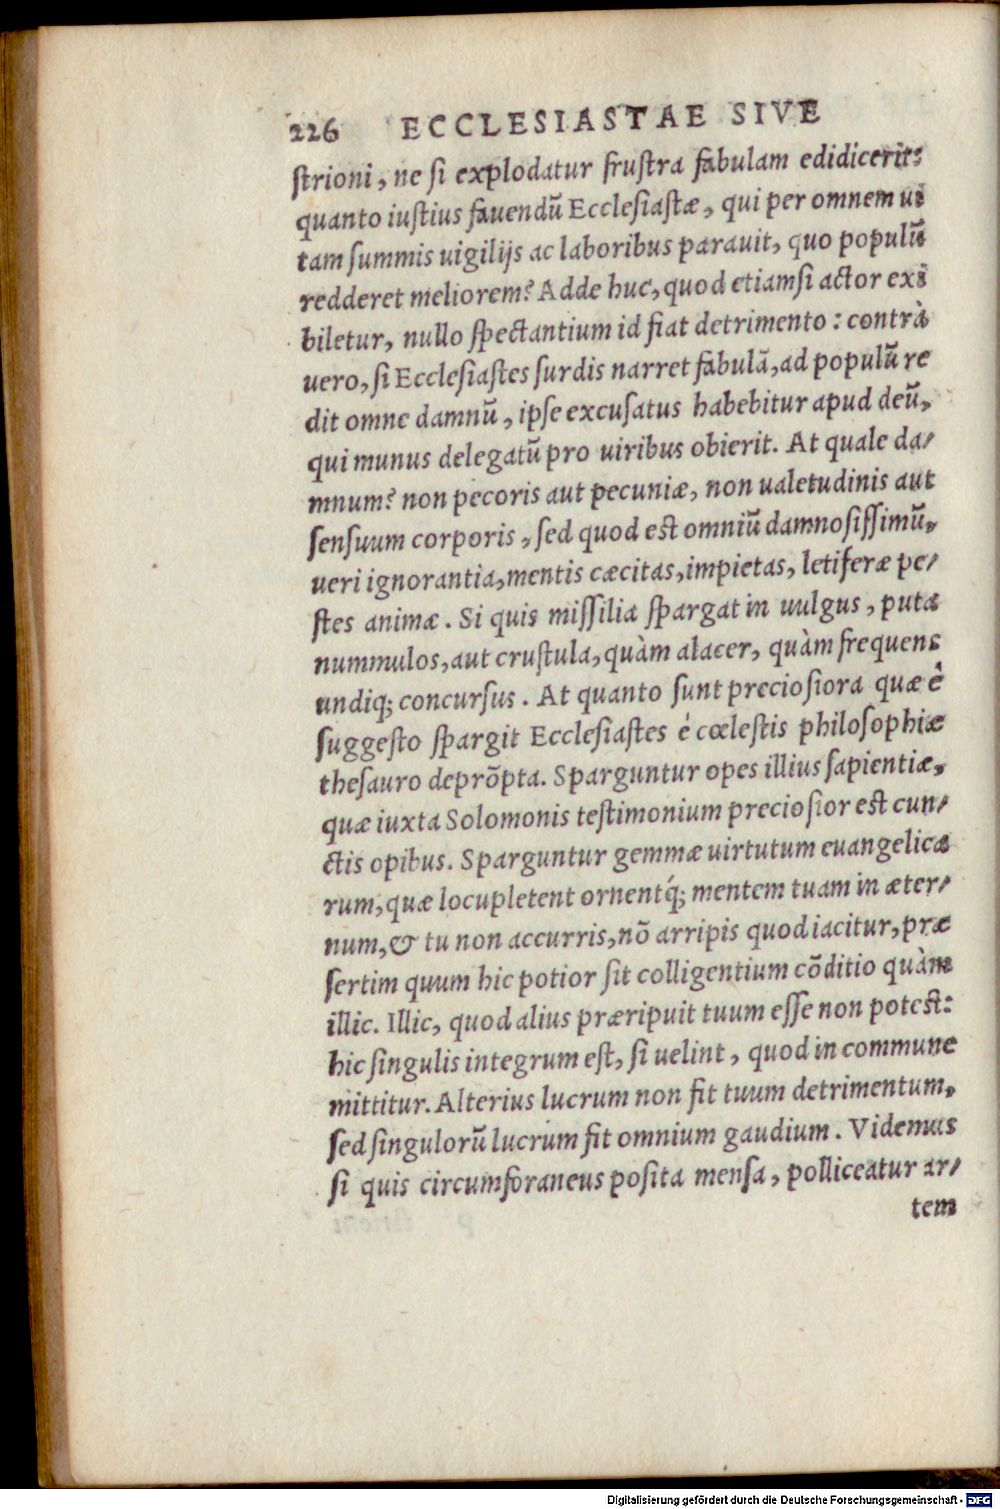 226 ECCLESIASTAE SIVE
strioni, ne si explodatur frustra fabulam edidicerit:
quanto iustius fauendũ Ecclesiastæ, qui per omnem ui
tam summis uigilijs ac laboribus parauit, quo populũ
redderet meliorem? Adde huc, quod etiamsi actor exi
biletur, nullo spectantium id fiat detrimento: contrà
uero, si Ecclesiastes surdis narret fabulã, ad populũ re
dit omne damnũ, ipse excusatus habebitur apud deũ,
qui munus delegatũ pro uiribus obierit. At quale da/
mnum? non pecoris aut pecuniæ, non ualetudinis aut
sensuum corporis, sed quod est omniũ damnosissimũ,
ueri ignorantia, mentis cæcitas, impietas, letiferæ pe/
stes animæ. Si quis missilia spargat in uulgus, puta
nummulos, aut crustula, quàm alacer, quàm frequens
undiq; concursus. At quanto sunt preciosiora quæ è
suggesto spargit Ecclesiastes é cœlestis philosophiæ
thesauro deprõpta. Sparguntur opes illius sapientiæ,
quæ iuxta Solomonis testimonium preciosior est cun/
ctis opibus. Sparguntur gemmæ uirtutum euangelica
rum, quæ locupletent ornentq́; mentem tuam in æter/
num, & tu non accurris, nõ arripis quod iacitur, præ
sertim quum hic potior sit colligentium cõditio quàm
illic. Illic, quod alius præripuit tuum esse non potest:
hic singulis integrum est, si uelint, quod in commune
mittitur. Alterius lucrum non fit tuum detrimentum,
sed singulorũ lucrum fit omnium gaudium. Videmus
si quis circumforaneus posita mensa, polliceatur ar/
tem
Digitalisierung gefördert durch die Deutsche Forschungsgemeinschaft - DFG